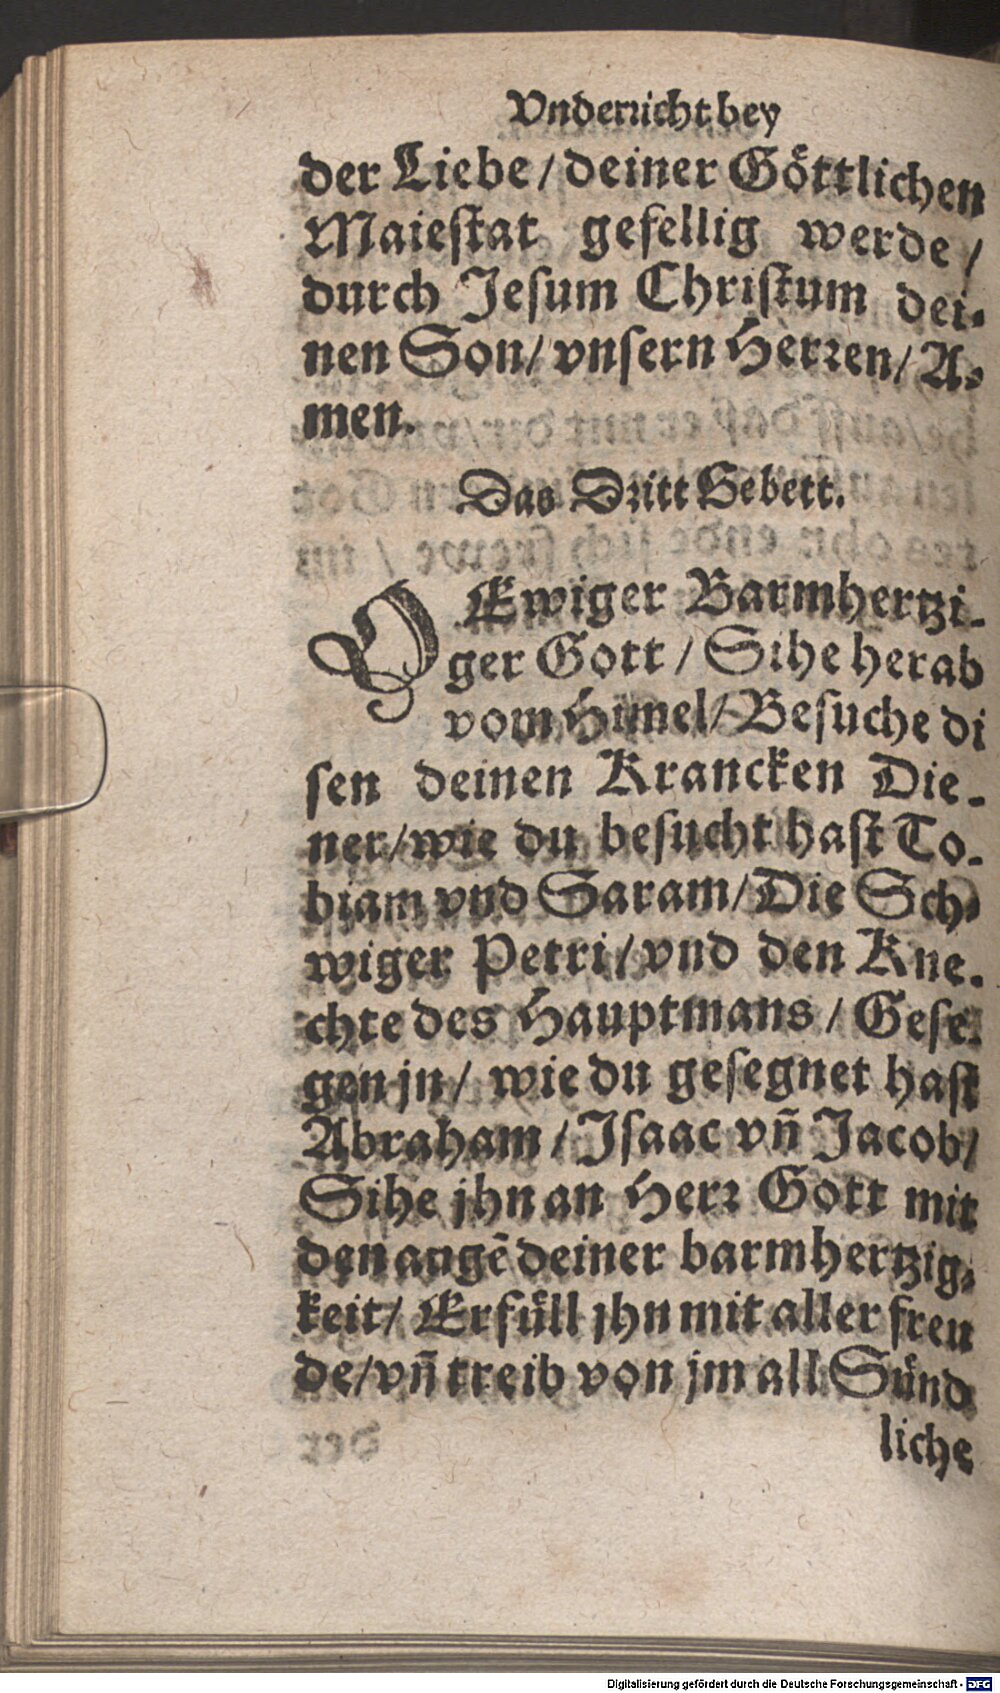 Vnderricht bey
der Liebe / deiner Göttlichen
Maiestat gefellig werde /
durch Jesum Christum dei-
nen Son / vnsern Herren / A-
men.
Das Dritt Gebett.
O Ewiger Barmhertzi-
ger Gott / Sihe herab
vom Himel / Besuche di
sen deinen Krancken Die-
ner / wie du besucht hast To-
biam vnd Saram / Die Sch-
wiger Petri / vnd den Kne-
chte des Hauptmans / Gese-
gen jn / wie du gesegnet hast
Abraham / Isaac vñ Jacob /
Sihe jhn an Herr Gott mit
den augẽ deiner barmhertzig-
keit / Erfüll jhn mit aller freu
de / vñ treib von jm all Sünd
liche
Digitalisierung gefördert durch die Deutsche Forschungsgemeinschaft - DFG